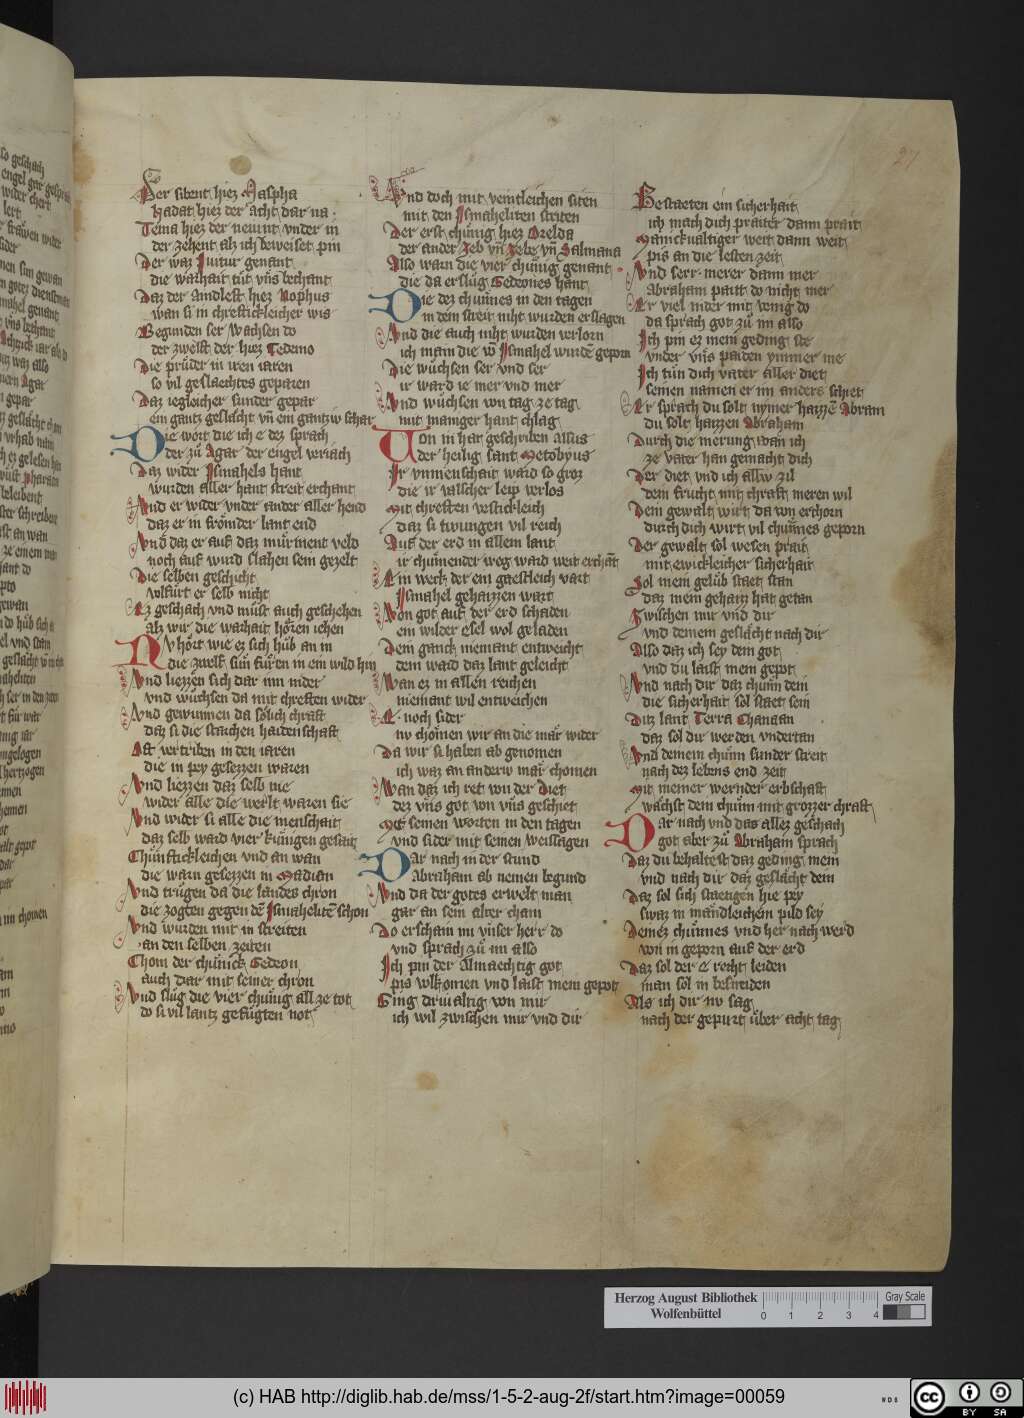 27
Der sibent hiez Maspha
hadat hiez der acht dar na
Tema hiez der neunt vnder in
der zehent als ich beweiset pin
Der waz Jutur genant
die warhait tuͦt vns bechant
Daz der aindleft hiez Nophus
wan si in chreftichleicher wis
Begunden ser wachsen do
der zwelft der hiez Tedemo
Die pruͤder in iren iaren
so vil geslaechtes geparen
Daz iegleicher sunder gepar
ein gantz geslächt vn̄ ein gantzew schar
Die wort die ich e dez sprach
der zuͦ Agar der engel veriach
Daz wider Jsmahels hant
wurden aller hant streit erchant
Vnd er wider vnder ander aller hend
daz er in froͤmder lant end
Vnd daz er auf daz
noch auf wurd slahen sein gezelt
Die selben geschicht
wolfurt er selb nicht
Ez geschach vnd muͦst auch geschehen
als wir die warhait hoͤren iehen
Nv hoͤrt wie ez sich huͦb an in
die zwelf suͤn fuͦrten in ein wild hin
Vnd liezzen sich dar inn nider
vnd wuͦchsen da mit chreften wider
Vnd gewunnen da soͤlich chraft
daz si die starchen haidenschaft
Ast vertriben in den iaren
die in pey gesezzen waren
Vnd liezzen daz selb nie
wider alle die werlt waren sie
Vnd wider si alle die menschait
daz selb ward vier kuͤnigen gesait
Chuͤnftichleichen vnd an wan
die warn gesezzen in Madian
Vnd truͦgen da die landes chron
die zogten gegen dē Jsmahelitē schon
Vnd wurden mit in streiten
an den selben zeiten
Chom der chuͤnick Gedeon
auch dar mit seiner chron
Vnd sluͦg die vier chuͤnig all ze tot
do si vil lantz gefuͤgten not
Vnd doch mit veintleichen siten
mit den Jsmaheliten striten
Der erst chuͤnig hiez Orelda
der ander Zeb vn̄ Zebe vn̄ Salmana
Also warn die vier chuͤnig genant
die da ersluͦg Gedeones hant
Die dez chuͤnnes in den tagen
in dem streit niht wurden erslagen
Vnd die auch niht wurden verlorn
ich main die vō Jsmahel wurdē geporn
Die wuͦchsen ser vnd ser
ir ward ie mer vnd mer
Vnd wuͦchsen von tag ze tag
mit maniger hant chlag
Von in har geschriben alsus
der heilig sant Metobyus
Jr vnmenschait ward so groz
die ir valscher leip verlos
Mit chreften vestichleich
daz si twungen vil reich
Auf der erd in allem lant
ir chuͤmender weg ward weit erchāt
Ein werck der ein gaestleich vart
Jsmahel gehaizzen wart
Von got auf der erd schaden
ein wilder esel wol geladen
Dem ganck niemant entweicht
dem ward daz lant geleicht
Wan ez in allen reichen
niemant wil entweichen
E noch sider
nv choͤmen wir an die maͤr wider
Da wir si haben ab genomen
ich waz an anderw maͤr chomen
Wan daz ich ret von der diet
dez vns got von vns geschiet
Mit seinen worten in den tagen
vnd sider mit seinen weissagen
Dar nach in der stund
Abraham ab nemen begund
Vnd da der gotes erwelt man
gar an sein alter cham
Do erscham im vnser herr do
vnd sprach zuͦ im also
Jch pin der Almaechtig got
pis volkomen vnd laist mein gepot
Ging driualtig von mir
ich wil zwischen mir vnd dir
Bestaeten ein sicherhait
ich mach dich praiter dann prait
Manickualtiger weit dann weit
pis an die lesten zeit
Vnd serr merer dann mer
Abraham pautt do nicht mer
Er viel nider mit venig do
da sprach got zuͦ im also
Jch pin ez mein geding ste
vnder vns paiden ymmer me
Jch tuͦn dich vater aller diet
seinen namen er im anders schiet
Er sprach du solt nymer haizzē Abram
du solt haizzen Abraham
Durch die merung wan ich
ze vater han gemacht dich
Der diet vnd ich allw zil
dein frucht mit chraft meren wil
Dem gewalt wirt da von erchorn
durch dich wirt vil chuͤnnes geporn
Der gewalt sol wesen prait
mit ewickleicher sicherhait
Sol mein geluͤb staet stan
daz mein gehaizz hat getan
Zwischen mir vnd dir
vnd deinem geslächt nach dir
Also daz ich sey dein got
vnd du laist mein gepot
Vnd nach dir daz chuͤnn dein
die sicherhait sol staet sein
Ditz lant Terra Chanaan
daz sol dir werden vndertan
Vnd deinem chuͤnn sunder streit
nach dez lebens end zeit
Mit meiner wernder erbschaft
wachst dein chuͤnn mit grozzer chraft
Dar nach vnd das allez geschach
got aber zuͦ Abraham sprach
Daz du behaltest daz geding mein
vnd nach dir daz geslächt dein
Daz sol sich staetigen hie pey
swaz in mandleichem pild sey
Deinez chuͤnnes vnd her nach werd
von in geporn auf der erd
Daz sol der e recht leiden
man sol in besneiden
Als ich dir nv sag
nach der gepurt uͤber acht tag
Herzog August Bibliothek
Wolfenbüttel
0 1 2 3 4
Gray Scale
(c) HAB http://diglib.hab.de/mss/1-5-2-aug-2f/start.htm?image=00059
WDB
cc BY SA